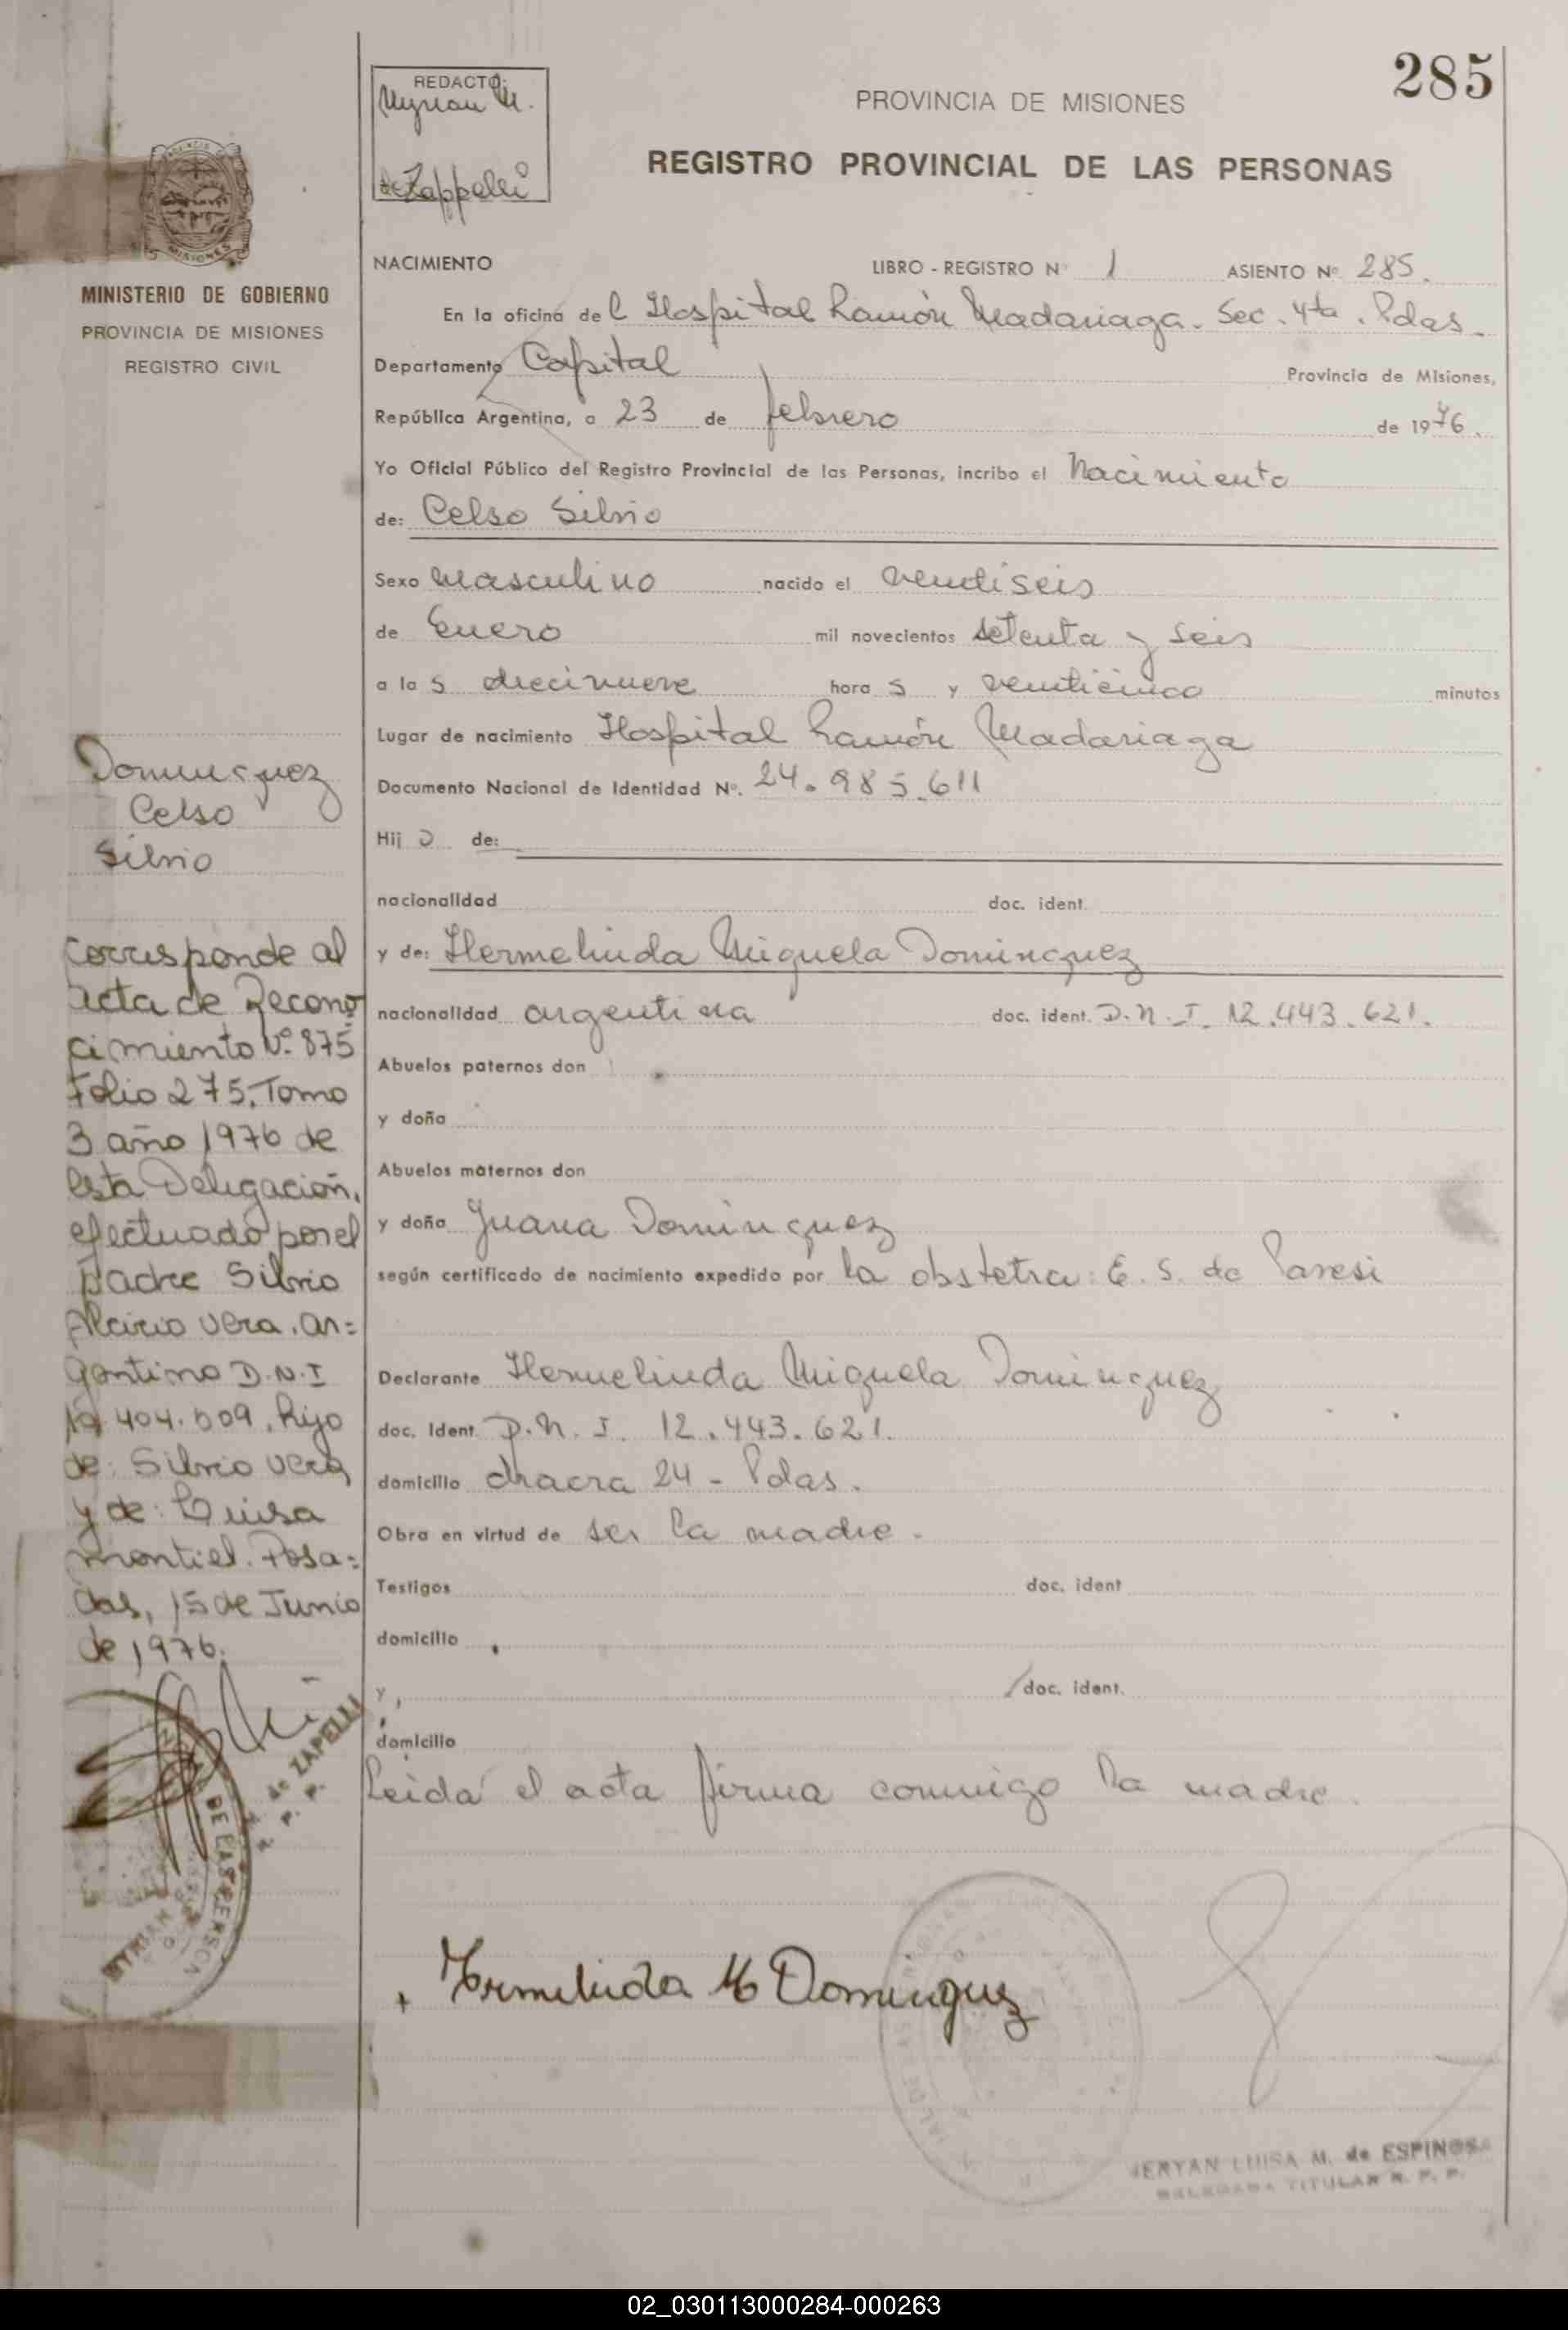 285
REDACTÓ:
Myrian M.
de Zappelli
PROVINCIA DE MISIONES
REGISTRO PROVINCIAL DE LAS PERSONAS
MISIONES
MINISTERIO DE GOBIERNO
PROVINCIA DE MISIONES
REGISTRO CIVIL
NACIMIENTO LIBRO - REGISTRO Nº 1 ASIENTO Nº 285.
En la oficina del Hospital Ramón Madariaga. Sec. 4ta. Pdas.
Departamento Capital Provincia de Misiones,
República Argentina, a 23 de febrero de 1976.
Yo Oficial Público del Registro Provincial de las Personas, incribo el Nacimiento
de: Celso Silvio
Sexo Masculino nacido el ventiseis
de Enero mil novecientos setenta y seis
a la s diecinueve hora s y venticinco minutos
Lugar de nacimiento Hospital Ramón Madariaga
Documento Nacional de Identidad Nº. 24.985.611
Hij o de:
nacionalidad doc. ident.
y de: Hermelinda Miguela Dominguez
nacionalidad argentina doc. ident. D.N.I. 12.443.621.
Abuelos paternos don
y doña
Abuelos maternos don
y doña Juana Dominguez
según certificado de nacimiento expedido por la obstetra: E. S. de Paresi
Declarante Hermelinda Miguela Dominguez
doc. Ident. D.N.I. 12.443.621.
domicilio chacra 24 - Pdas.
Obra en virtud de ser la madre.
Testigos doc. ident
domicilio
y, doc. ident.
domicilio
Leida el acta firma conmigo la madre.
Hermelinda M Dominguez
MERYAN LUISA M. de ESPINOSA
DELEGADA TITULAR R. P. P.
Dominguez
Celso
Silvio
Corresponde al
acta de Recono
cimiento Nº 875
Folio 275, Tomo
3 año 1976 de
esta Delegación,
efectuado por el
padre Silvio
Alcirio Vera, ar=
gentino D.N.I
404.509, hijo
de: Silvio Vera
y de: Luisa
Montiel. Posa=
das, 15 de Junio
de 1976.
de ZAPELLI
DE LAS PERSONA
02_030113000284-000263